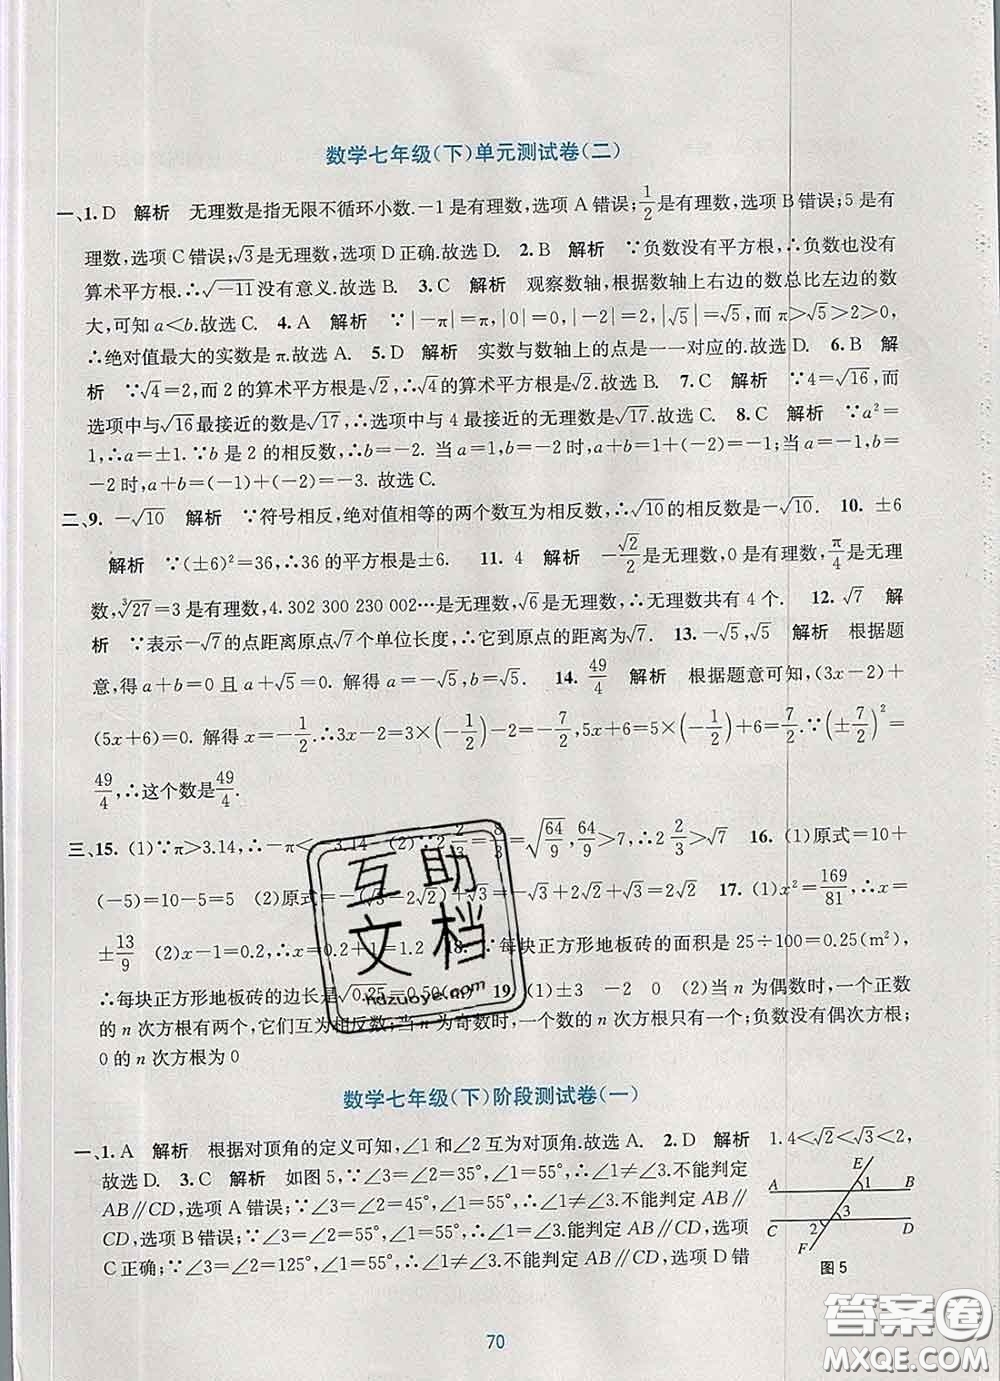 数学七年级(下)单元测试卷(二)
一、1. D 解析 无理数是指无限不循环小数.-1是有理数,选项A错误;1/2是有理数,选项B错误;5是有
理数,选项C错误;√3是无理数,选项D正确.故选D. 2. B 解析 ∵负数没有平方根,∴负数也没有
算术平方根.∴√-11没有意义.故选B. 3. C 解析 观察数轴,根据数轴上右边的数总比左边的数
大,可知a<b.故选C. 4. A 解析 ∵|-π|=π,|0|=0,|-2|=2,|√5|=√5,而π>√5>2>0,
∴绝对值最大的实数是π.故选A. 5. D 解析 实数与数轴上的点是一一对应的.故选D. 6. B 解
析 ∵√4=2,而2的算术平方根是√2,∴√4的算术平方根是√2.故选B. 7. C 解析 ∵4=√16,而
选项中与√16最接近的数是√17,∴选项中与4最接近的无理数是√17.故选C. 8. C 解析 ∵a²=
1,∴a=±1.∵b是2的相反数,∴b=-2. 当a=1,b=-2时,a+b=1+(-2)=-1;当a=-1,b=
-2时,a+b=(-1)+(-2)=-3. 故选C.
二、9. -√10 解析 ∵符号相反,绝对值相等的两个数互为相反数,∴√10的相反数是-√10. 10. ±6
解析 ∵(±6)²=36,∴36的平方根是±6. 11. 4 解析 -√2/2是无理数,0是有理数,π/4是无理
数,³√27=3是有理数,4.302 300 230 002…是无理数,√6是无理数,∴无理数共有4个. 12. √7 解
析 ∵表示-√7的点距离原点√7个单位长度,∴它到原点的距离为√7. 13. -√5,√5 解析 根据题
意,得a+b=0且a+√5=0. 解得a=-√5,b=√5. 14. 49/4 解析 根据题意可知,(3x-2)+
(5x+6)=0. 解得x=-1/2.∴3x-2=3×(-1/2)-2=-7/2,5x+6=5×(-1/2)+6=7/2.∵(±7/2)²=
49/4,∴这个数是49/4.
三、15. (1)∵π>3.14,∴-π<-3.14 (2)∵2 2/3=8/3=√64/9,64/9>7,∴2 2/3>√7 16. (1)原式=10+
(-5)=10-5=5 (2)原式=(-1+2)√3+2√2=-√3+2√2+√3=2√2 17. (1)x²=169/81,∴x=
±13/9 (2)x-1=0.2,∴x=0.2+1=1.2 18. ∵每块正方形地板砖的面积是25÷100=0.25(m²),
∴每块正方形地板砖的边长是√0.25=0.50(m) 19. (1)±3 -2 0 (2)当n为偶数时,一个正数
的n次方根有两个,它们互为相反数;当n为奇数时,一个数的n次方根只有一个;负数没有偶次方根;
0的n次方根为0
数学七年级(下)阶段测试卷(一)
一、1. A 解析 根据对顶角的定义可知,∠1和∠2互为对顶角.故选A. 2. D 解析 1.4<√2<√3<2,
故选D. 3. C 解析 如图5,∵∠3=∠2=35°,∠1=55°,∴∠1≠∠3.不能判定
AB∥CD,选项A错误;∵∠3=∠2=45°,∠1=55°,∴∠1≠∠3.不能判定AB∥
CD,选项B错误;∵∠3=∠2=55°,∠1=55°,∴∠1=∠3.能判定AB∥CD,选项
C正确;∵∠3=∠2=125°,∠1=55°,∴∠1≠∠3.不能判定AB∥CD,选项D错
E
A 1 B
3
C 2 D
F
图5
70
互助
文档
hdzuoye.com
答案圈
MXQE.COM